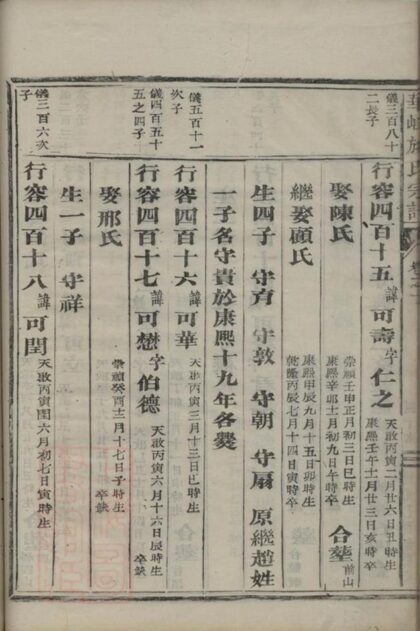 儀三百八十二長子
行容四百十五 諱 可壽 字 仁之 天啟丙寅二月廿六日丑時生 康熙壬午十一月廿三日亥時卒
娶陳氏 崇禎壬申正月初三日巳時生 康熙辛卯十一月初九日午時卒 合塟 前山
繼娶顧氏 康熙甲辰九月十五日卯時生 乾隆丙辰七月十四日寅時卒
生四子 守育 守敦 守朝 守扇 原繼趙姓
一子名守貴於康熙十九年各爨
儀五百十一次子
行容四百十六 諱 可華 天啟丙寅三月十三日巳時生
儀四百五十五之四子
行容四百十七 諱 可懋 字 伯德 天啟丙寅六月十六日辰時生 卒缺
娶邢氏 崇禎癸酉十二月十七日子時生 卒缺
生一子 守祥
儀三百六次子
行容四百十八 諱 可閏 天啟丙寅閏六月初七日寅時生